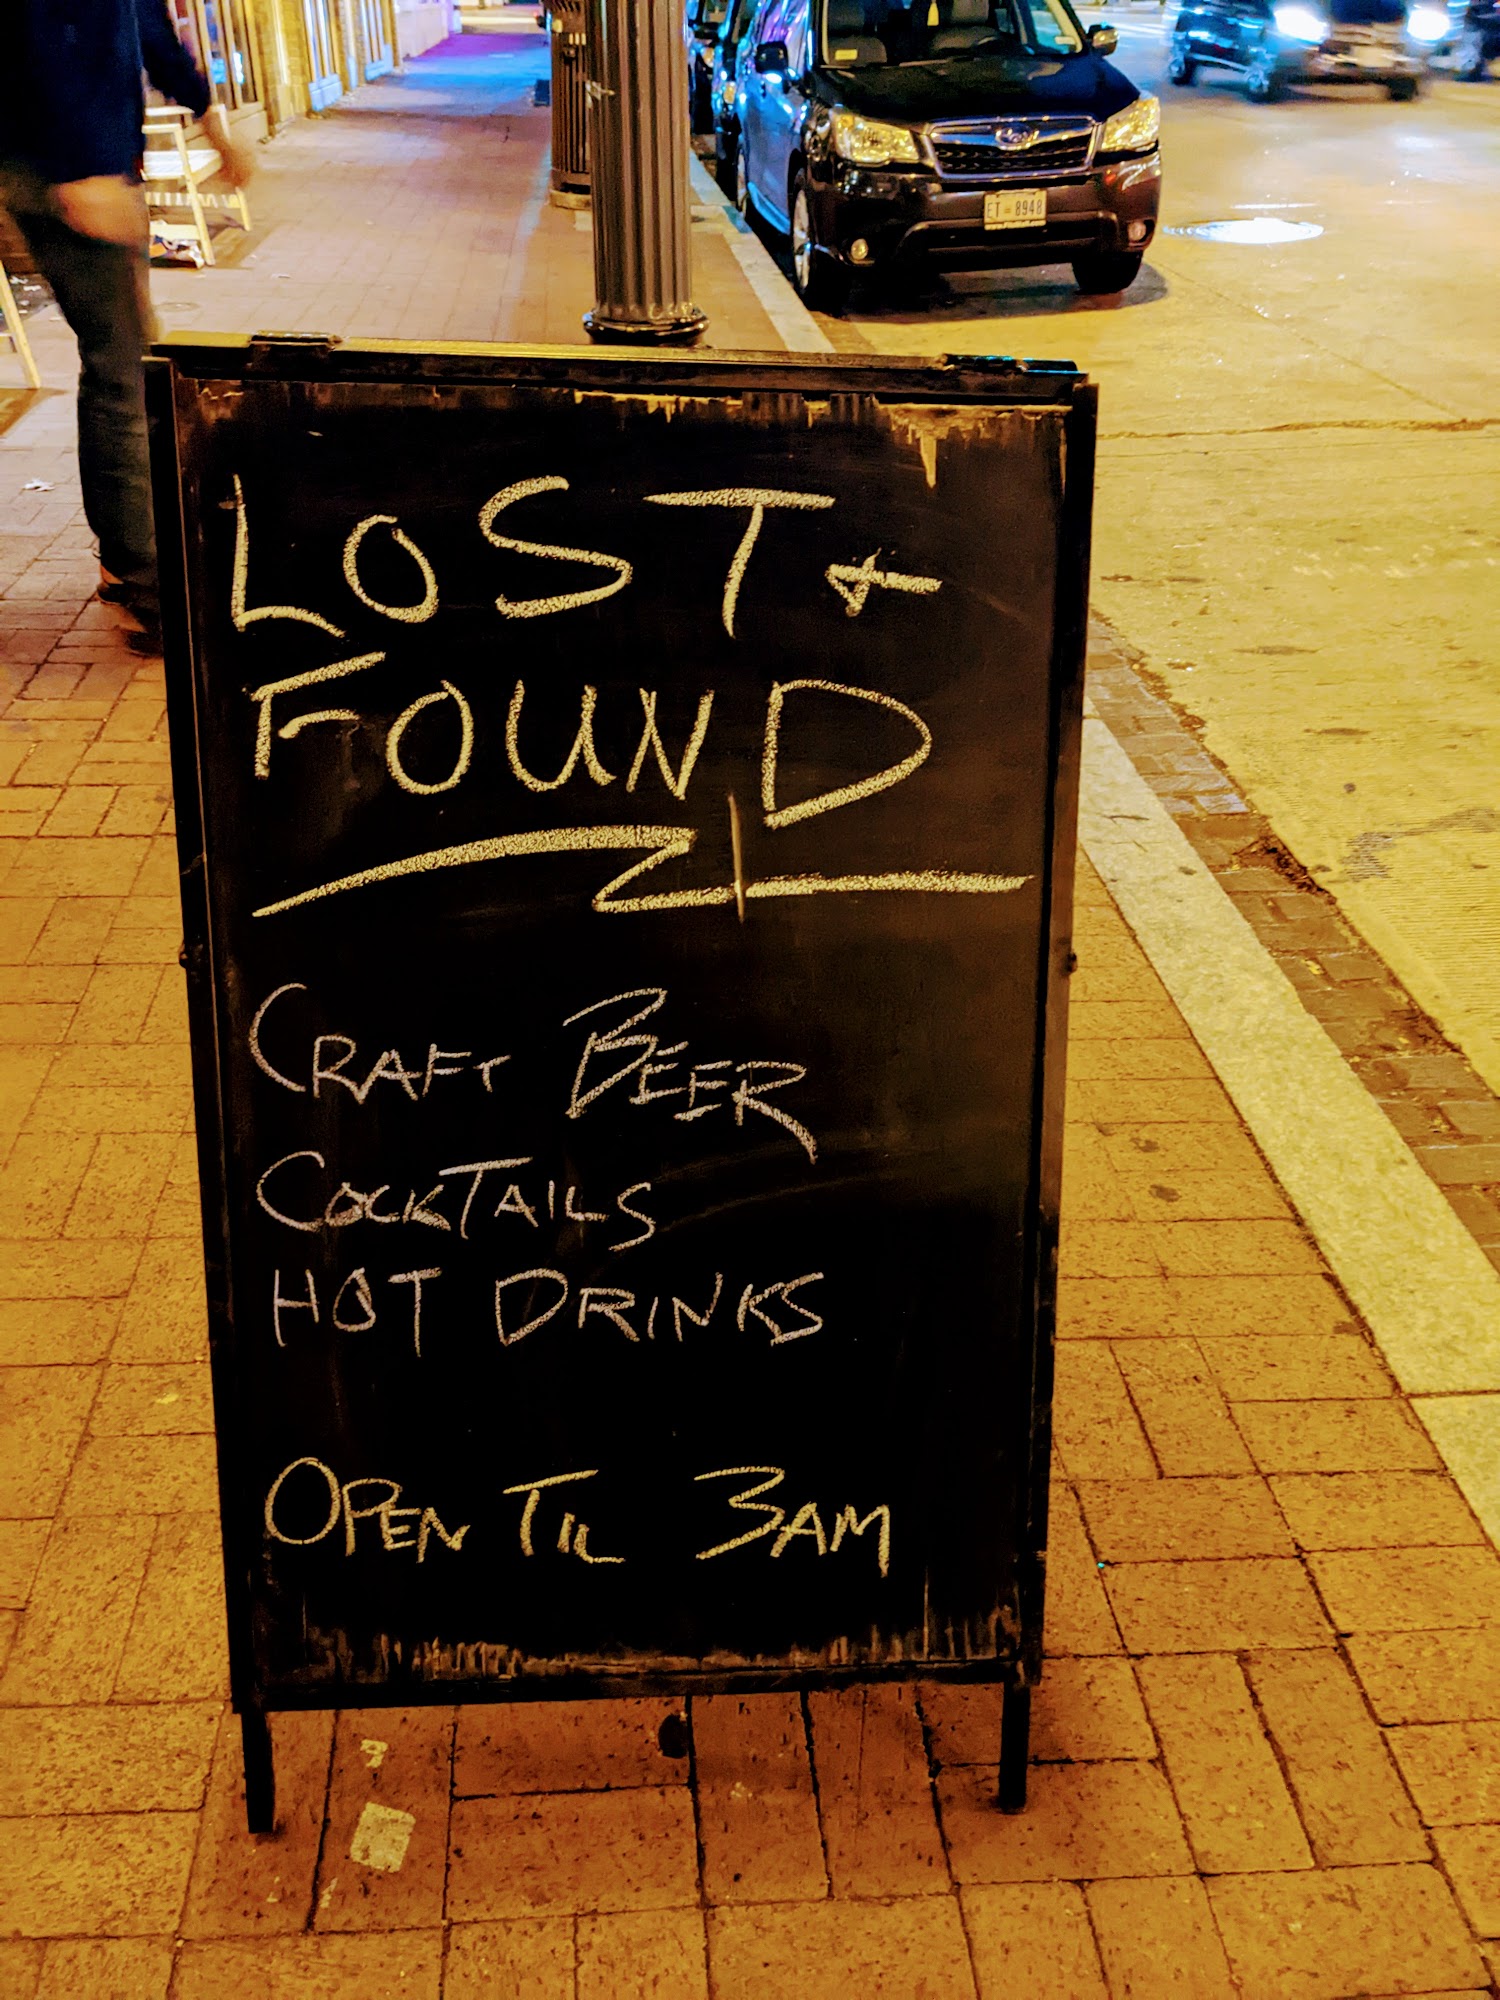 LOST &
FOUND
CRAFT BEER
COCKTAILS
HOT DRINKS
OPEN TIL 3AM
ET 8948